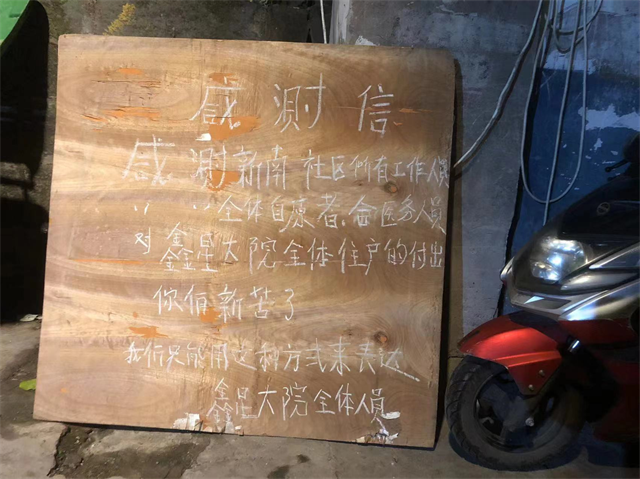 感测信
感测新南社区所有工作人员
〃 〃全体自原者、合医务人员
对鑫星大院全体住户的付出
你俩新苦了
我们只能用这种方式来表达
鑫星大院全体人員